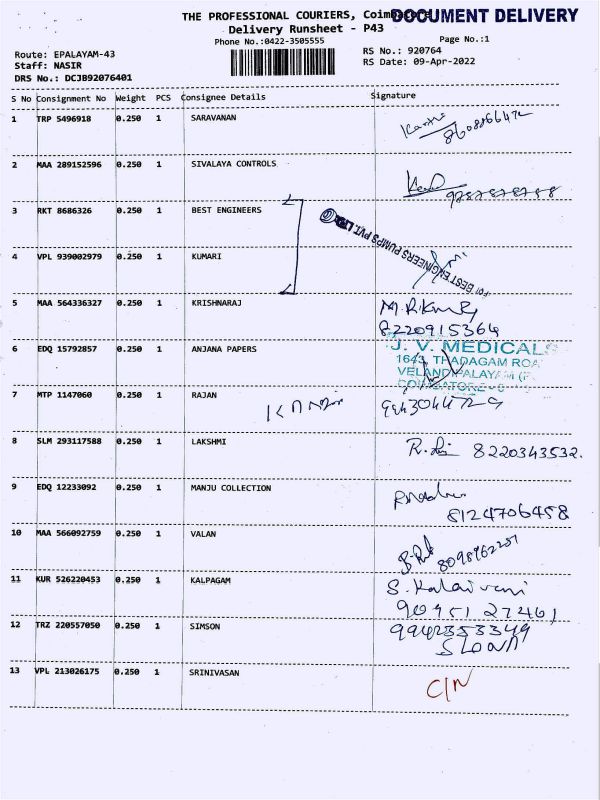 THE PROFESSIONAL COURIERS, Coimbatore DOCUMENT DELIVERY
Delivery Runsheet - P43
Phone No.:0422-3505555 Page No.:1
Route: EPALAYAM-43 RS No.: 920764
Staff: NASIR RS Date: 09-Apr-2022
DRS No.: DCJB92076401
S No Consignment No Weight PCS Consignee Details Signature
1 TRP 5496918 0.250 1 SARAVANAN
2 MAA 289152596 0.250 1 SIVALAYA CONTROLS
3 RKT 8686326 0.250 1 BEST ENGINEERS
For BEST ENGINEERS PUMPS PVT. LTD.
4 VPL 939002979 0.250 1 KUMARI
5 MAA 564336327 0.250 1 KRISHNARAJ
8220915364
6 EDQ 15792857 0.250 1 ANJANA PAPERS
J. V. MEDICALS
1643, THADAGAM ROA
VELANDIPALAYAM (P
COIMBATORE
7 MTP 1147060 0.250 1 RAJAN
8 SLM 293117588 0.250 1 LAKSHMI 8220343532.
9 EDQ 12233092 0.250 1 MANJU COLLECTION
8124706458
10 MAA 566092759 0.250 1 VALAN
11 KUR 526220453 0.250 1 KALPAGAM S. Kalaivani
90951 27461
12 TRZ 220557050 0.250 1 SIMSON 9942353349
13 VPL 213026175 0.250 1 SRINIVASAN C/N